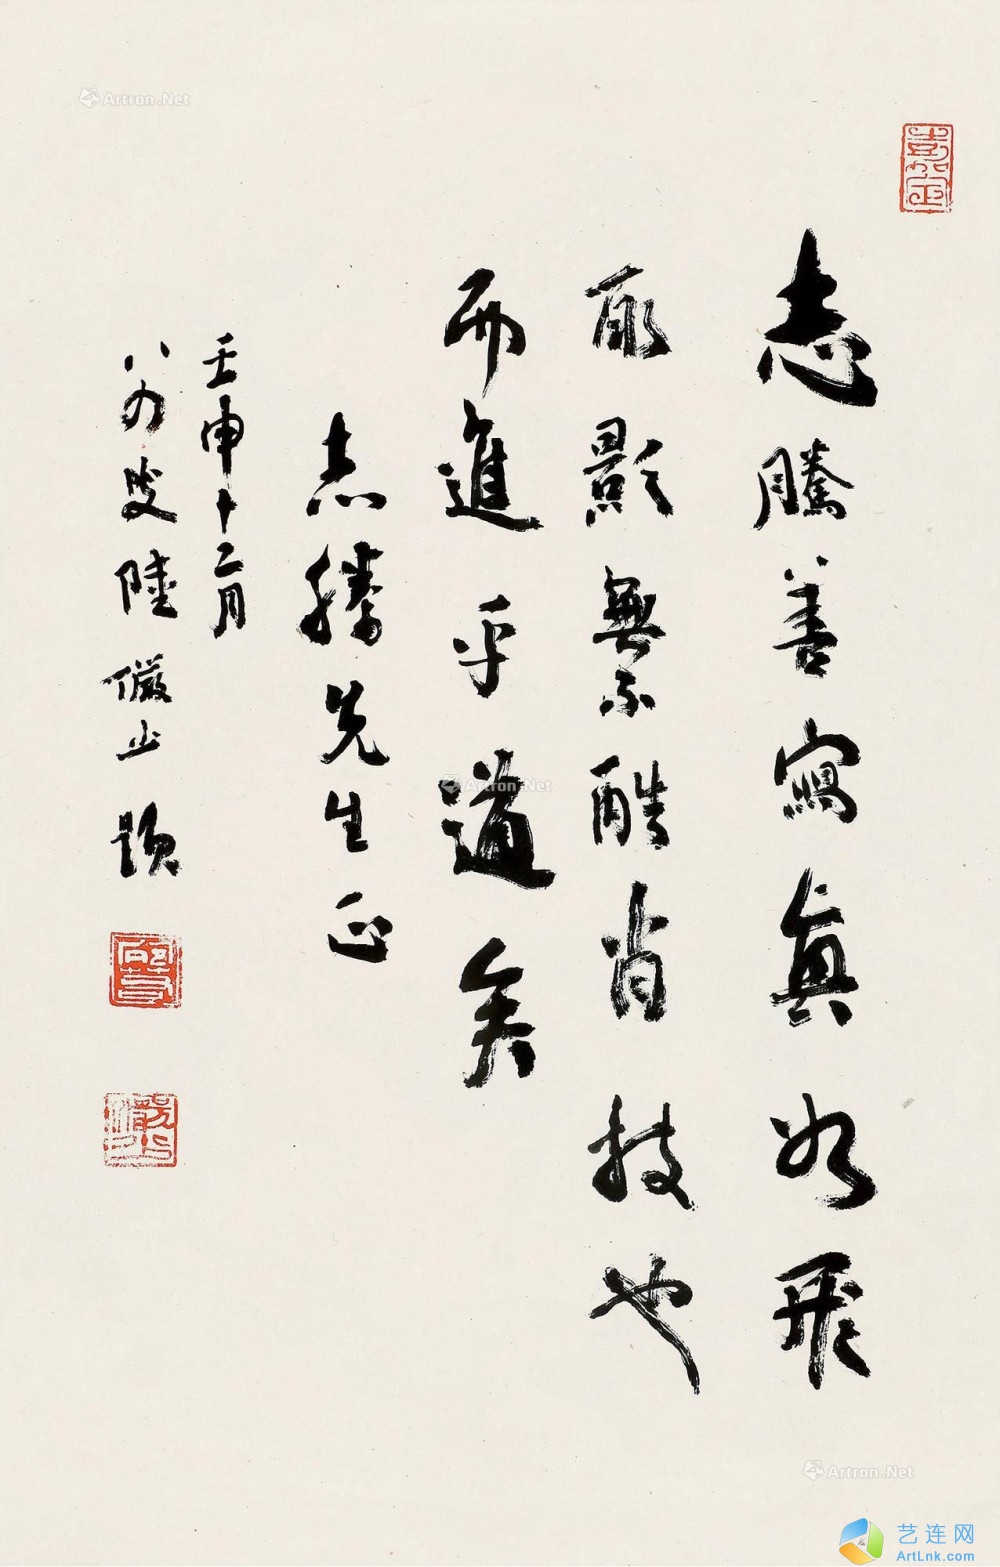 志騰善寫真如飛
取影無不酷肖技也
而進乎道矣
志騰先生正
壬申十二月
八四叟陸儼少題
嘉定
Artron.Net
Artron.Net
Artron.Net
艺连网
ArtLnk.com